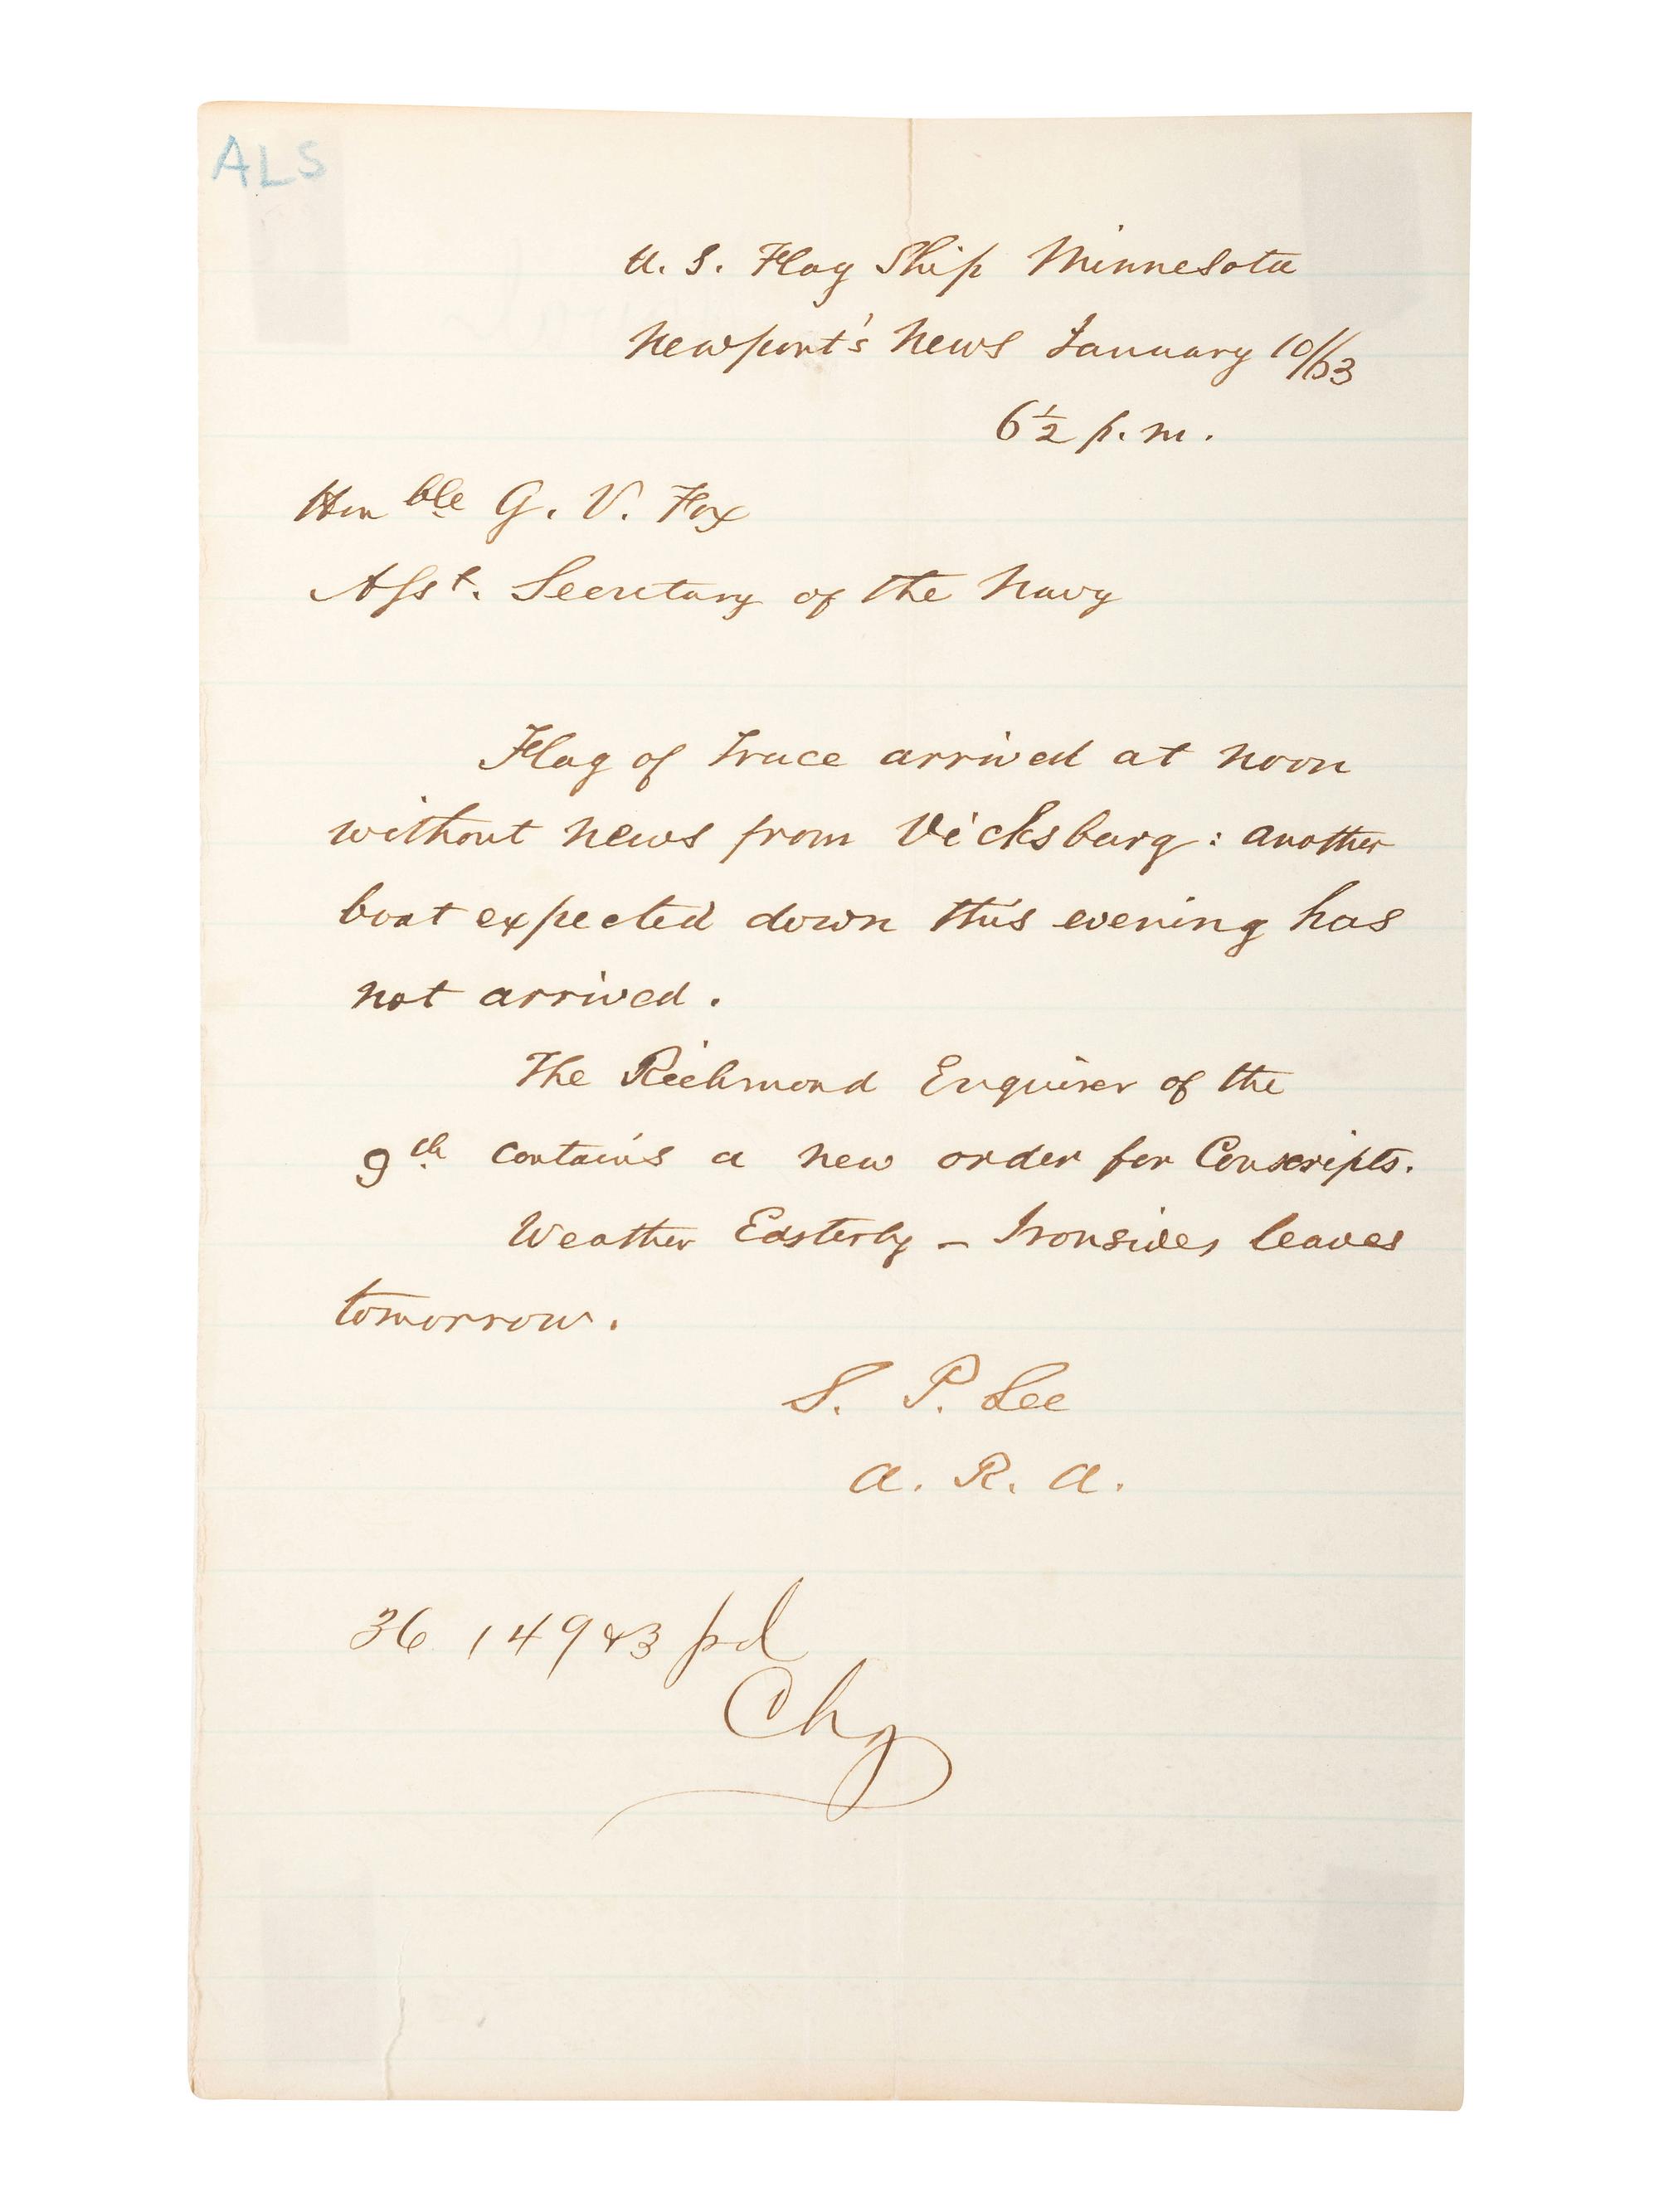 ALS
U. S. Flag Ship Minnesota
Newport's News January 10/63
6½ p.m.
Hon ble G. V. Fox
Asst. Secretary of the Navy
Flag of Truce arrived at noon
without news from Vicksburg: another
boat expected down this evening has
not arrived.
The Richmond Enquirer of the
9th contains a new order for Conscripts.
Weather Easterly – Ironsides leaves
tomorrow.
S. P. Lee
A. R. A.
36 149 &3 pd
Chg